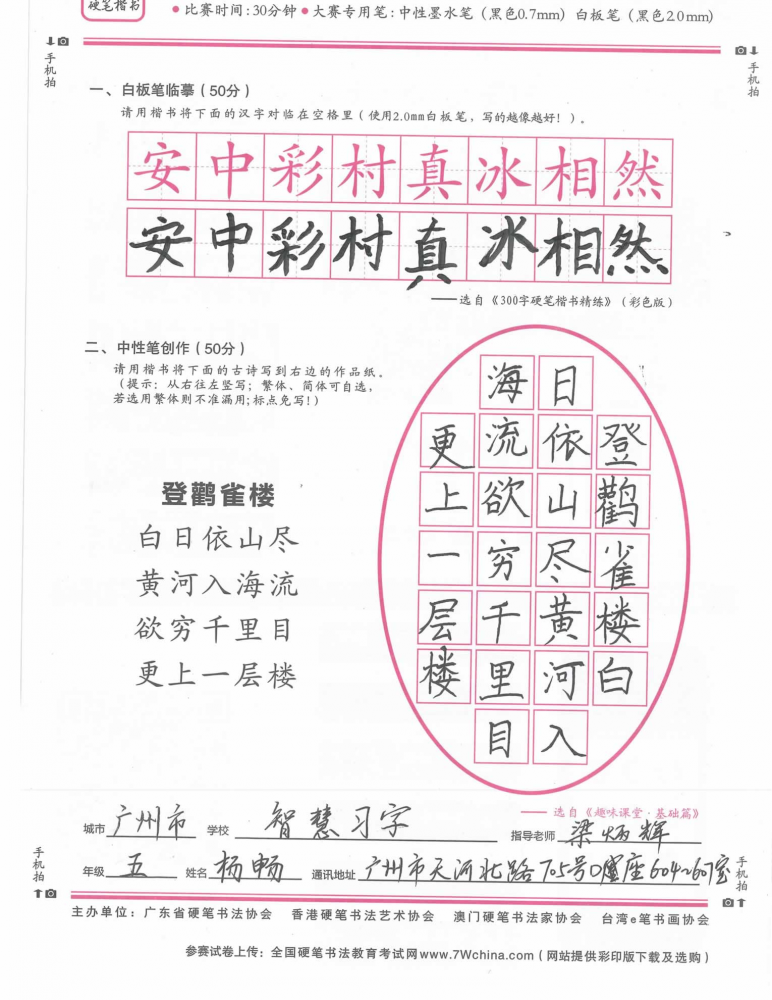 硬笔楷书
●比赛时间:30分钟●大赛专用笔:中性墨水笔（黑色0.7mm）白板笔（黑色2.0mm）
手机拍
手机拍
一、白板笔临摹（50分）
请用楷书将下面的汉字对临在空格里（使用2.0mm白板笔，写的越像越好！）。
安中彩村真冰相然
安中彩村真冰相然
——选自《300字硬笔楷书精练》（彩色版）
二、中性笔创作（50分）
请用楷书将下面的古诗写到右边的作品纸。
（提示：从右往左竖写；繁体、简体可自选，
若选用繁体则不准漏用;标点免写!）
登鹳雀楼
白日依山尽
黄河入海流
欲穷千里目
更上一层楼
登鹳雀楼白
日依山尽黄河入
海流欲穷千里目
更上一层楼
——选自《趣味课堂·基础篇》
城市 广州市 学校 智慧习字 指导老师 梁炳辉
年级 五 姓名 杨畅 通讯地址 广州市天河北路705号D座604~607室
手机拍
手机拍
主办单位：广东省硬笔书法协会 香港硬笔书法艺术协会 澳门硬笔书法家协会 台湾e笔书画协会
参赛试卷上传：全国硬笔书法教育考试网www.7Wchina.com（网站提供彩印版下载及选购）